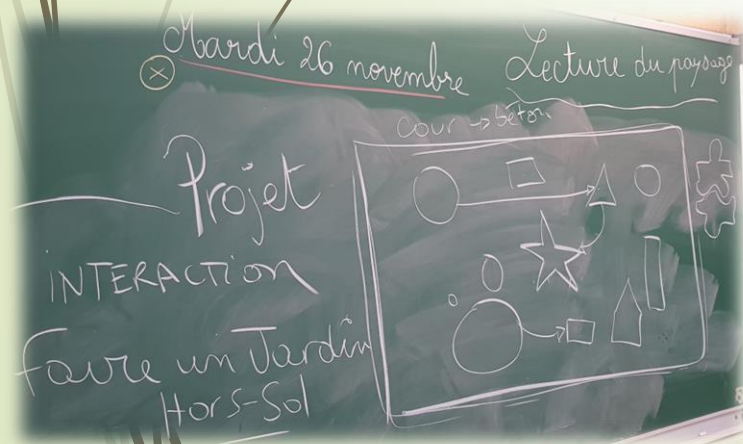 Mardi 26 novembre
Lecture du paysage
cour → béton
Projet
INTERACTION
Faire un Jardin
Hors-Sol